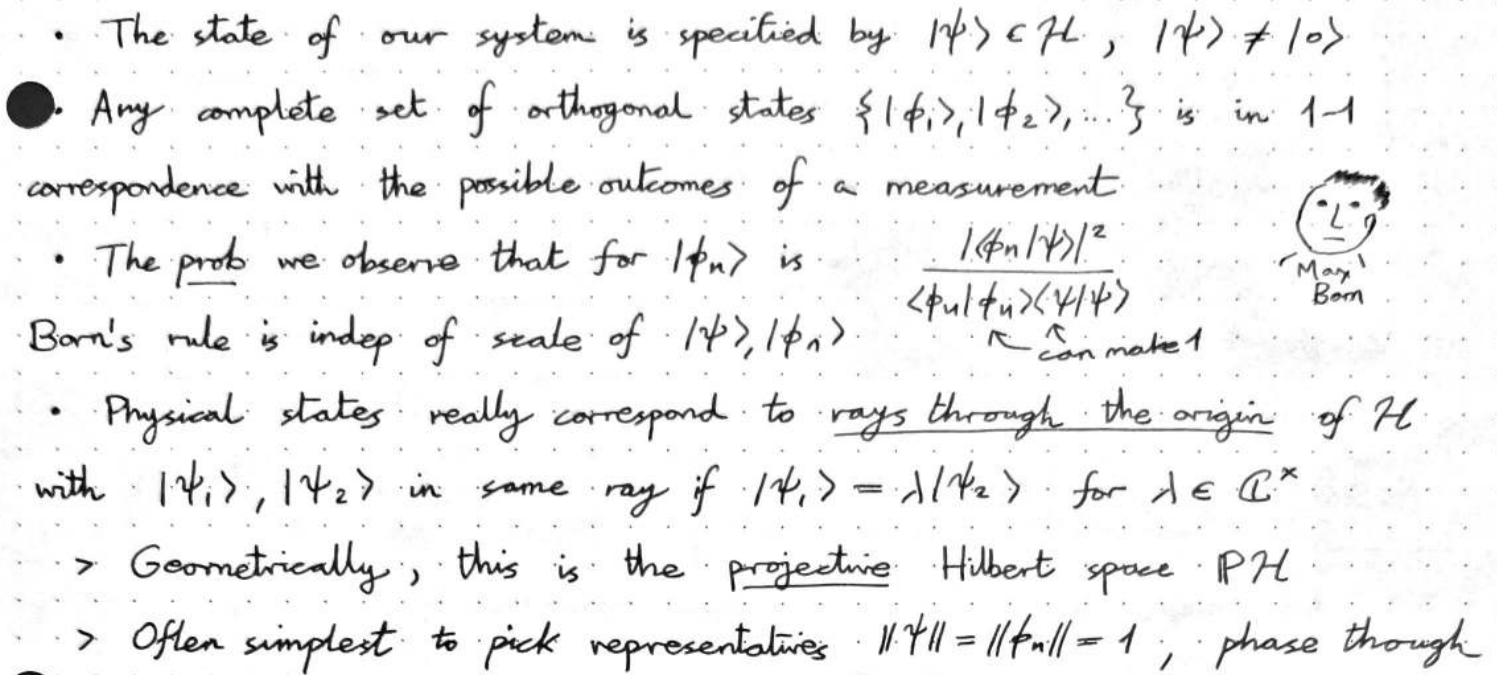 • The state of our system is specified by |ψ⟩ ∈ ℋ, |ψ⟩ ≠ |0⟩
• Any complete set of orthogonal states {|ϕ₁⟩, |ϕ₂⟩, ...} is in 1-1
correspondence with the possible outcomes of a measurement
• The prob we observe that for |ϕₙ⟩ is |⟨ϕₙ|ψ⟩|² / ⟨ϕₙ|ϕₙ⟩⟨ψ|ψ⟩
'Max'
Born
Born's rule is indep of scale of |ψ⟩, |ϕₙ⟩
↖ ↖ can make 1
• Physical states really correspond to rays through the origin of ℋ
with |ψ₁⟩, |ψ₂⟩ in same ray if |ψ₁⟩ = λ|ψ₂⟩ for λ ∈ ℂˣ
> Geometrically, this is the projective Hilbert space ℙℋ
> Often simplest to pick representatives ‖ψ‖ = ‖ϕₙ‖ = 1, phase though